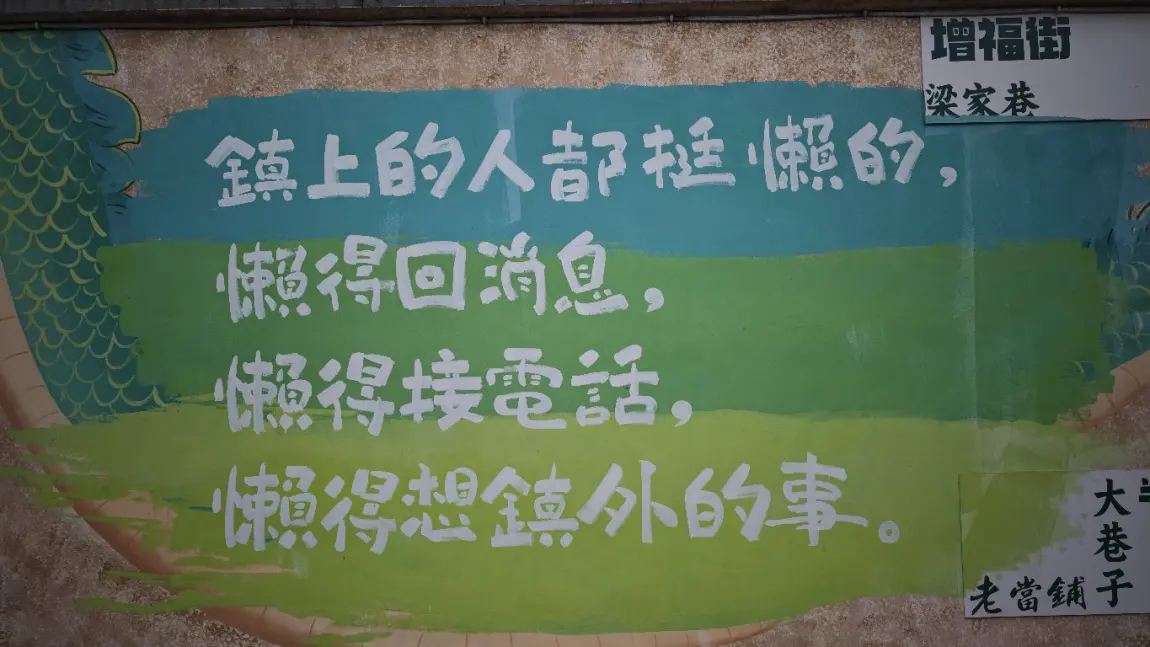 鎮上的人都挺懶的，
懶得回消息，
懶得接電話，
懶得想鎮外的事。
增福街
梁家巷
大巷子
老當鋪